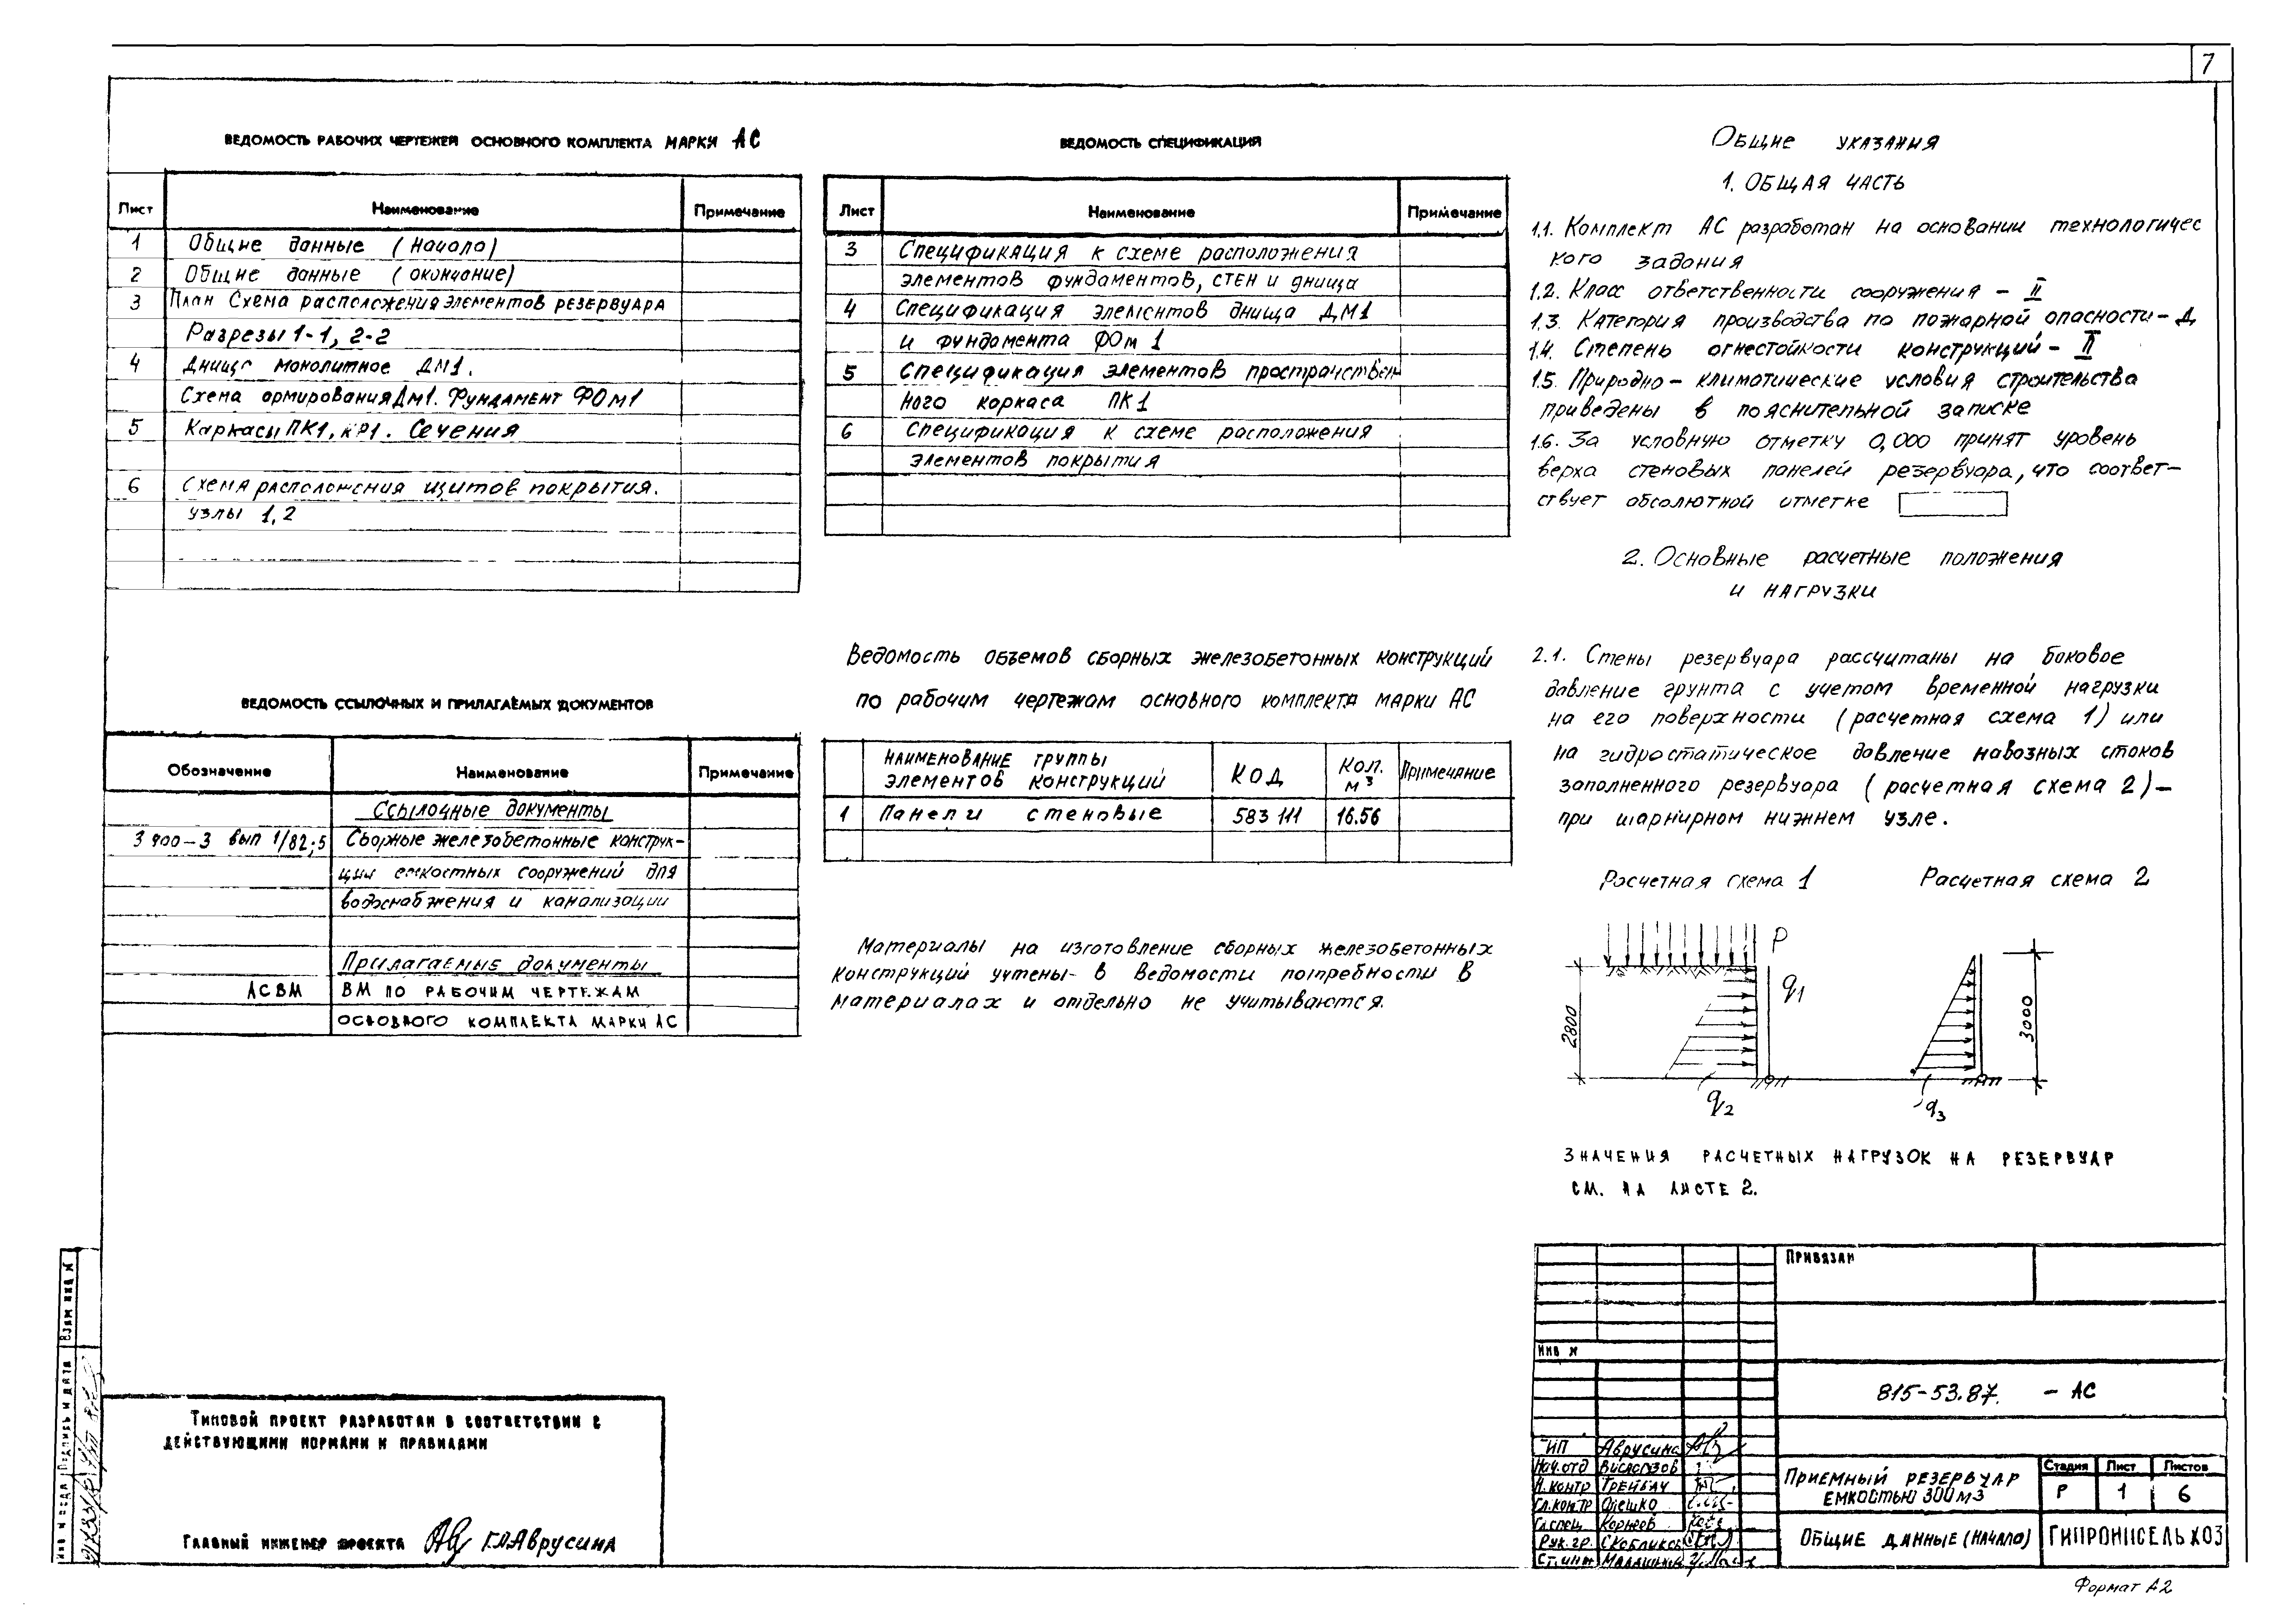 7
ВЕДОМОСТЬ РАБОЧИХ ЧЕРТЕЖЕЙ ОСНОВНОГО КОМПЛЕКТА МАРКИ АС
Лист Наименование Примечание
1 Общие данные (начало)
2 Общие данные (окончание)
3 План Схема расположения элементов резервуара
Разрезы 1-1, 2-2
4 Днище монолитное ДМ1.
Схема армирования Дм1. Фундамент ФОм1
5 Каркасы ПК1, КР1. Сечения
6 Схема расположения щитов покрытия.
узлы 1,2
ВЕДОМОСТЬ ССЫЛОЧНЫХ И ПРИЛАГАЕМЫХ ДОКУМЕНТОВ
Обозначение Наименование Примечание
Ссылочные документы
3 900-3 вып 1/82;5 Сборные железобетонные конструк-
ции емкостных сооружений для
водоснабжения и канализации
Прилагаемые документы
АСВМ ВМ ПО РАБОЧИМ ЧЕРТЕЖАМ
ОСНОВНОГО КОМПЛЕКТА МАРКИ АС
ВЕДОМОСТЬ СПЕЦИФИКАЦИЯ
Лист Наименование Примечание
3 Спецификация к схеме расположения
элементов фундаментов, стен и днища
4 Спецификация элементов днища ДМ1
и фундамента ФОм 1
5 Спецификация элементов пространствен
ного каркаса ПК1
6 Спецификация к схеме расположения
элементов покрытия
Ведомость объемов сборных железобетонных конструкций
по рабочим чертежам основного комплекта марки АС
Наименование группы элементов конструкций КОД Кол. м3 Примечание
1 Панели стеновые 583 111 16.56
Материалы на изготовление сборных железобетонных
конструкций учтены- в ведомости потребности в
материалах и отдельно не учитываются.
Общие указания
1. ОБЩАЯ ЧАСТЬ
1.1. Комплект АС разработан на основании технологичес
кого задания
1.2. Класс ответственности сооружения – II
1.3. Категория производства по пожарной опасности – Д
1.4. Степень огнестойкости конструкций – II
1.5. Природно – климатические условия строительства
приведены в пояснительной записке
1.6. За условную отметку 0,000 принят уровень
верха стеновых панелей резервуара, что соответ-
ствует абсолютной отметке
2. Основные расчетные положения
и нагрузки
2.1. Стены резервуара рассчитаны на боковое
давление грунта с учетом временной нагрузки
на его поверхности (расчетная схема 1) или
на гидростатическое давление навозных стоков
заполненного резервуара (расчетная схема 2) –
при шарнирном нижнем узле.
Расчетная схема 1 Расчетная схема 2
P
q1
2800
3000
q2
q3
ЗНАЧЕНИЯ РАСЧЕТНЫХ НАГРУЗОК НА РЕЗЕРВУАР
СМ. НА ЛИСТЕ 2.
Типовой проект разработан в соответствии с
действующими нормами и правилами
Главный инженер проекта Г.Л. Аврусина
Взам инв №
Подпись и дата
Инв № подл
Привязан
Инв №
815-53.87. – АС
ГИП Аврусина
Нач.отд
Н.контр Трейбач
Гл.контр Олешко
Гл.спец Корнеев
Рук.гр. Скобликов
Ст.инж
Приемный резервуар
емкостью 300м3
Стадия Лист Листов
Р 1 6
Общие данные (начало)
ГИПРОНИСЕЛЬХОЗ
Формат А2